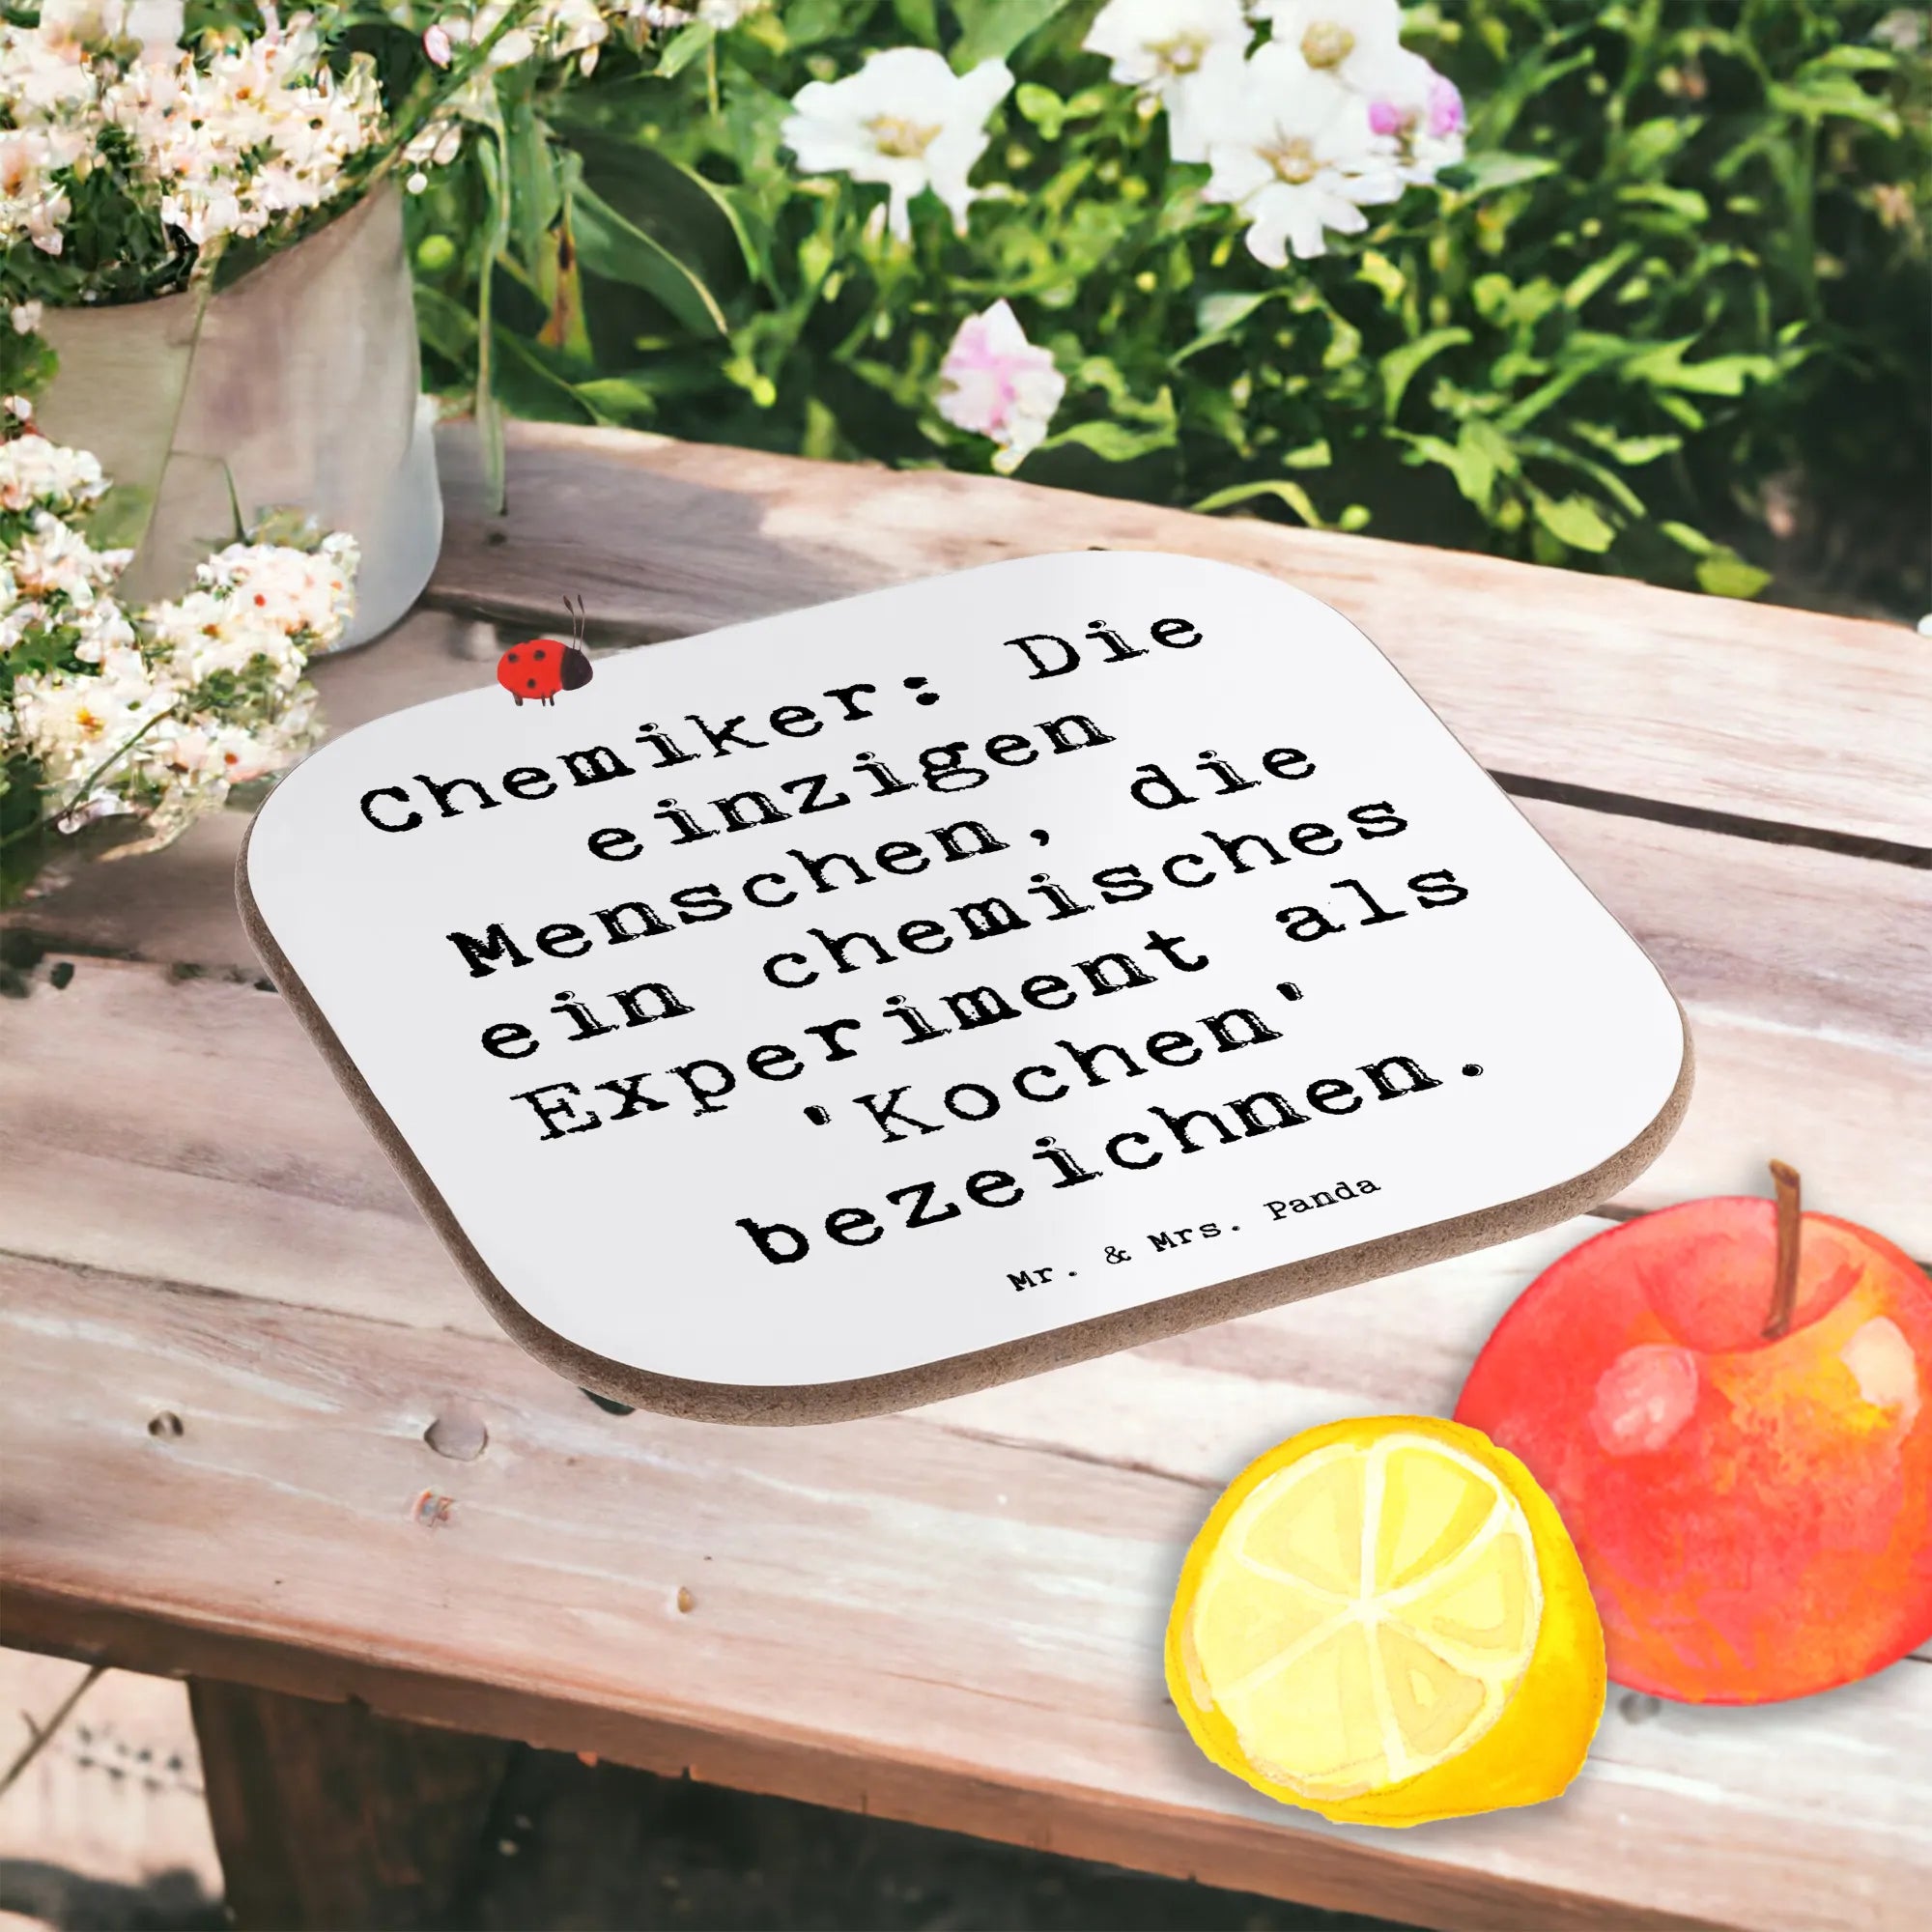 Chemiker: Die
einzigen
Menschen, die
ein chemisches
Experiment als
'Kochen'
bezeichnen.
Mr. & Mrs. Panda